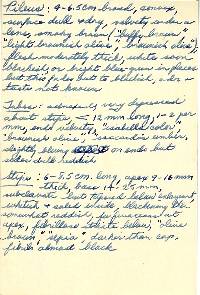 Pileus: 4-6.5cm broad, convex,
surface dull & dry, velvety under a
lens, smoky brown ("buffy brown"
"light brownish olive", "brownish olive"),
flesh moderately thick, white soon
blackish or slight blue-green in places
but this fades out to blackish, odor &
taste not known
Tubes: adnexed, very depressed
about stipe, 12 mm long, 1-2 per
mm, and velvety, "isabella color",
"brownish olive", cinnamon umber,
slightly or ends but
older dull reddish
Stipe: 6-5.5 cm. long, apex 9-16 mm
thick, base 25 mm,
subclavate but tapered below enlargement
whitish & solid white, blackening then
somewhat reddish, surface at
apex, fibrillose white below, "olive
brown", "sepia", darker than cap,
fibrils almost black